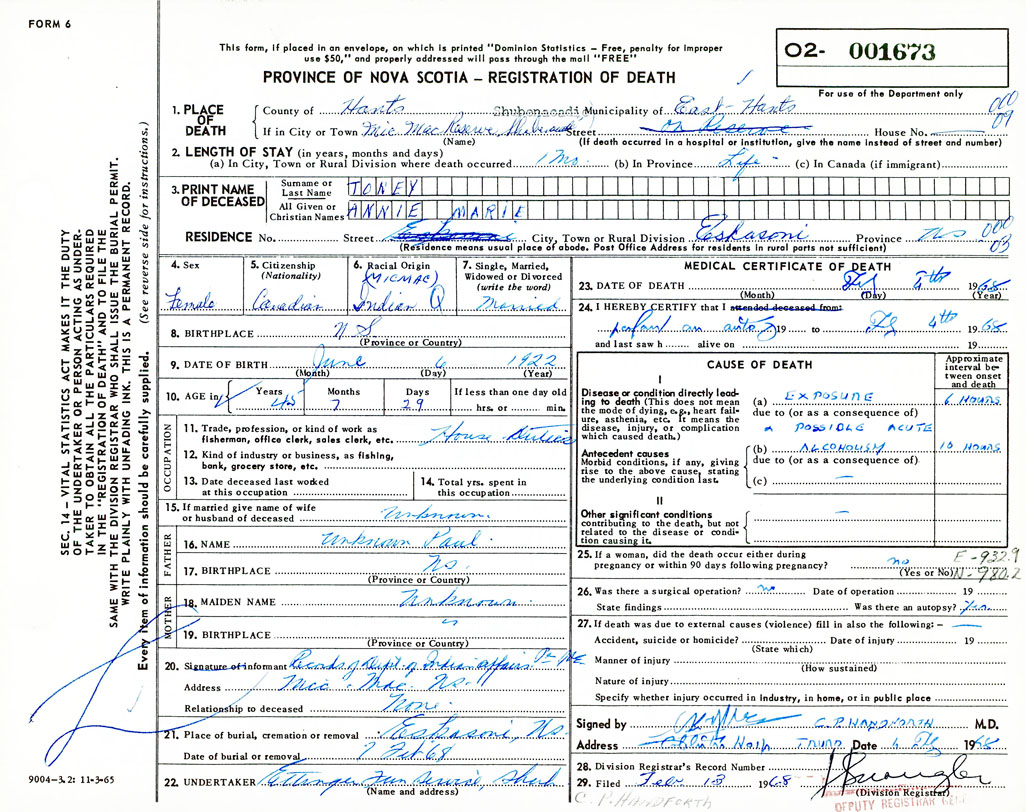 FORM 6
This form, if placed in an envelope, on which is printed "Dominion Statistics – Free, penalty for improper
use $50," and properly addressed will pass through the mail "FREE"
PROVINCE OF NOVA SCOTIA – REGISTRATION OF DEATH
O2- 001673
For use of the Department only
1. PLACE OF DEATH
County of Hants Shubenacadi Municipality of East-Hants 000 09
If in City or Town Mic Mac Reserve, Street on Reserve House No.
(Name) (If death occurred in a hospital or institution, give the name instead of street and number)
2. LENGTH OF STAY (in years, months and days)
(a) In City, Town or Rural Division where death occurred 1 Mo. (b) In Province Life - (c) In Canada (if immigrant)
3. PRINT NAME OF DECEASED
Surname or Last Name TONEY
All Given or Christian Names ANNIE MARIE
RESIDENCE No. Street Eskasoni City, Town or Rural Division Eskasoni Province NS 000 03
(Residence means usual place of abode. Post Office Address for residents in rural parts not sufficient)
4. Sex Female
5. Citizenship (Nationality) Canadian
6. Racial Origin (MICMAC) Indian Q
7. Single, Married, Widowed or Divorced (write the word) Married
8. BIRTHPLACE N S
(Province or Country)
9. DATE OF BIRTH June 6 1922
(Month) (Day) (Year)
10. AGE in Years 45 Months 7 Days 29 If less than one day hrs. or min.
OCCUPATION
11. Trade, profession, or kind of work as fisherman, office clerk, sales clerk, etc. House Duties
12. Kind of industry or business, as fishing, bank, grocery store, etc.
13. Date deceased last worked at this occupation
14. Total yrs. spent in this occupation
15. If married give name of wife or husband of deceased Unknown
FATHER
16. NAME Unknown Paul
17. BIRTHPLACE Ns.
(Province or Country)
MOTHER
18. MAIDEN NAME Unknown
19. BIRTHPLACE "
(Province or Country)
20. Signature of informant Records of Dept of Indian Affairs
Address Mic-Mac. Ns-
Relationship to deceased None.
21. Place of burial, cremation or removal Eskasoni, Ns.
Date of burial or removal 7 Feb 68
22. UNDERTAKER Ettinger Fun Service, Shub
(Name and address)
MEDICAL CERTIFICATE OF DEATH
23. DATE OF DEATH Feb 4th 1968
(Month) (Day) (Year)
24. I HEREBY CERTIFY that I attended deceased from:
19 to Feb 4th 1968
and last saw h alive on 19
CAUSE OF DEATH
Approximate interval between onset and death
I
Disease or condition directly leading to death (This does not mean the mode of dying, e.g., heart failure, asthenia, etc. It means the disease, injury, or complication which caused death.)
(a) EXPOSURE 6 HOURS
due to (or as a consequence of)
A POSSIBLE ACUTE
Antecedent causes
Morbid conditions, if any, giving rise to the above cause, stating the underlying condition last.
(b) ALCOHOLISM 10 HOURS
due to (or as a consequence of)
(c) —
II
Other significant conditions
contributing to the death, but not related to the disease or condition causing it.
—
25. If a woman, did the death occur either during pregnancy or within 90 days following pregnancy? no
(Yes or No)
E-932.9
N-980.2
26. Was there a surgical operation? no Date of operation 19
State findings Was there an autopsy? Yes
27. If death was due to external causes (violence) fill in also the following: – —
Accident, suicide or homicide? Date of injury 19
(State which)
Manner of injury
(How sustained)
Nature of injury
Specify whether injury occurred in industry, in home, or in public place
Signed by C.P. HANDFORTH M.D.
Address TRURO Date 4 Feb 1968
28. Division Registrar's Record Number
29. Filed Feb 13 1968
(Division Registrar)
DEPUTY REGISTRAR GEN
C. P. HANDFORTH
SEC. 14 – VITAL STATISTICS ACT MAKES IT THE DUTY
OF THE UNDERTAKER OR PERSON ACTING AS UNDER-
TAKER TO OBTAIN ALL THE PARTICULARS REQUIRED
IN THE "REGISTRATION OF DEATH" AND TO FILE THE
SAME WITH THE DIVISION REGISTRAR WHO SHALL ISSUE THE BURIAL PERMIT.
WRITE PLAINLY WITH UNFADING INK. THIS IS A PERMANENT RECORD.
Every item of information should be carefully supplied. (See reverse side for instructions.)
9004-3.2: 11-3-65